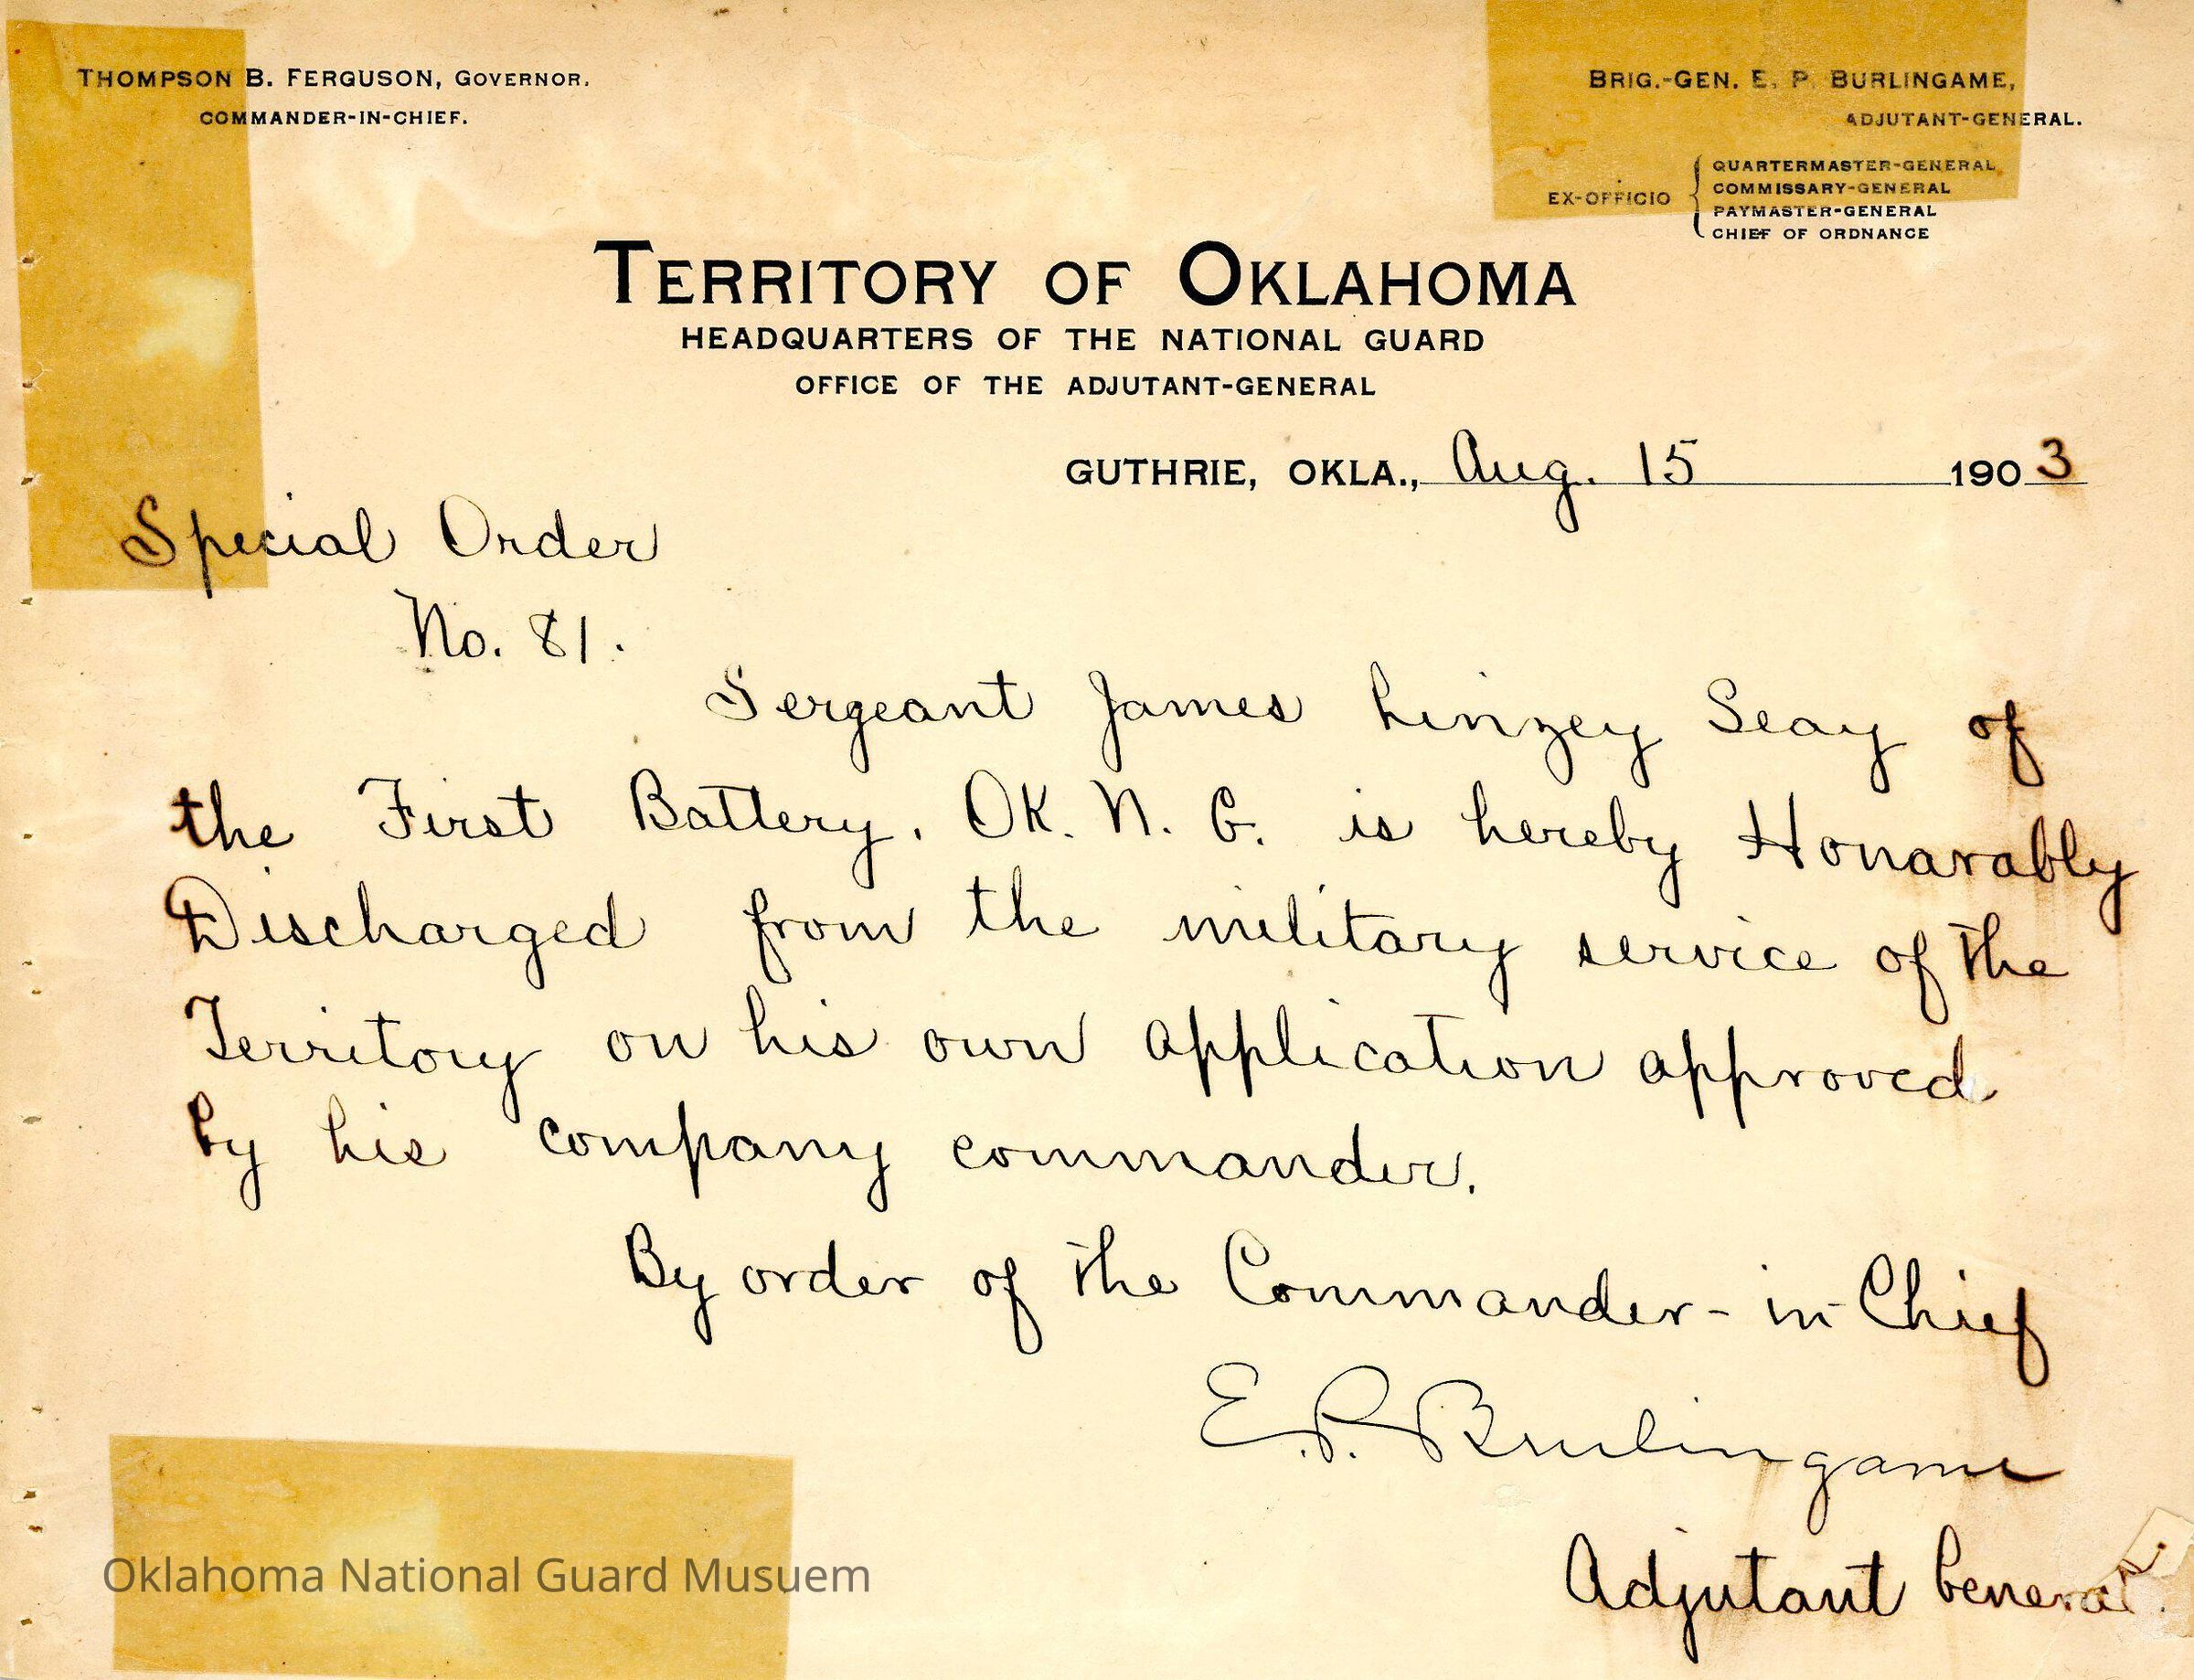 THOMPSON B. FERGUSON, GOVERNOR.
COMMANDER-IN-CHIEF.
BRIG.-GEN. E. P. BURLINGAME,
ADJUTANT-GENERAL.
EX-OFFICIO { QUARTERMASTER-GENERAL
COMMISSARY-GENERAL
PAYMASTER-GENERAL
CHIEF OF ORDNANCE
TERRITORY OF OKLAHOMA
HEADQUARTERS OF THE NATIONAL GUARD
OFFICE OF THE ADJUTANT-GENERAL
GUTHRIE, OKLA., Aug. 15 1903
Special Order
No. 81.
Sergeant James Linzey Seay of
the First Battery, OK. N. G. is hereby Honarably
Discharged from the military service of the
Territory on his own application approved
by his company commander.
By order of the Commander-in-Chief
E. P. Burlingame
Adjutant General.
Oklahoma National Guard Musuem